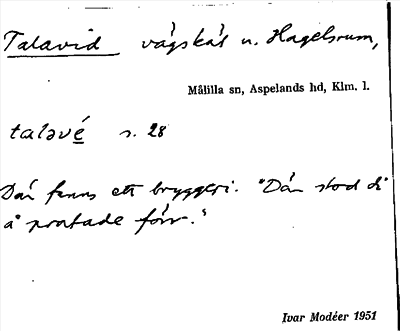 Talavid vägskäl n. Hagelsrum,
Målilla sn, Aspelands hd, Klm. l.
taləvé s. 28
Där finns ett bryggeri. "Där stod di
å pratade förr."
Ivar Modéer 1951